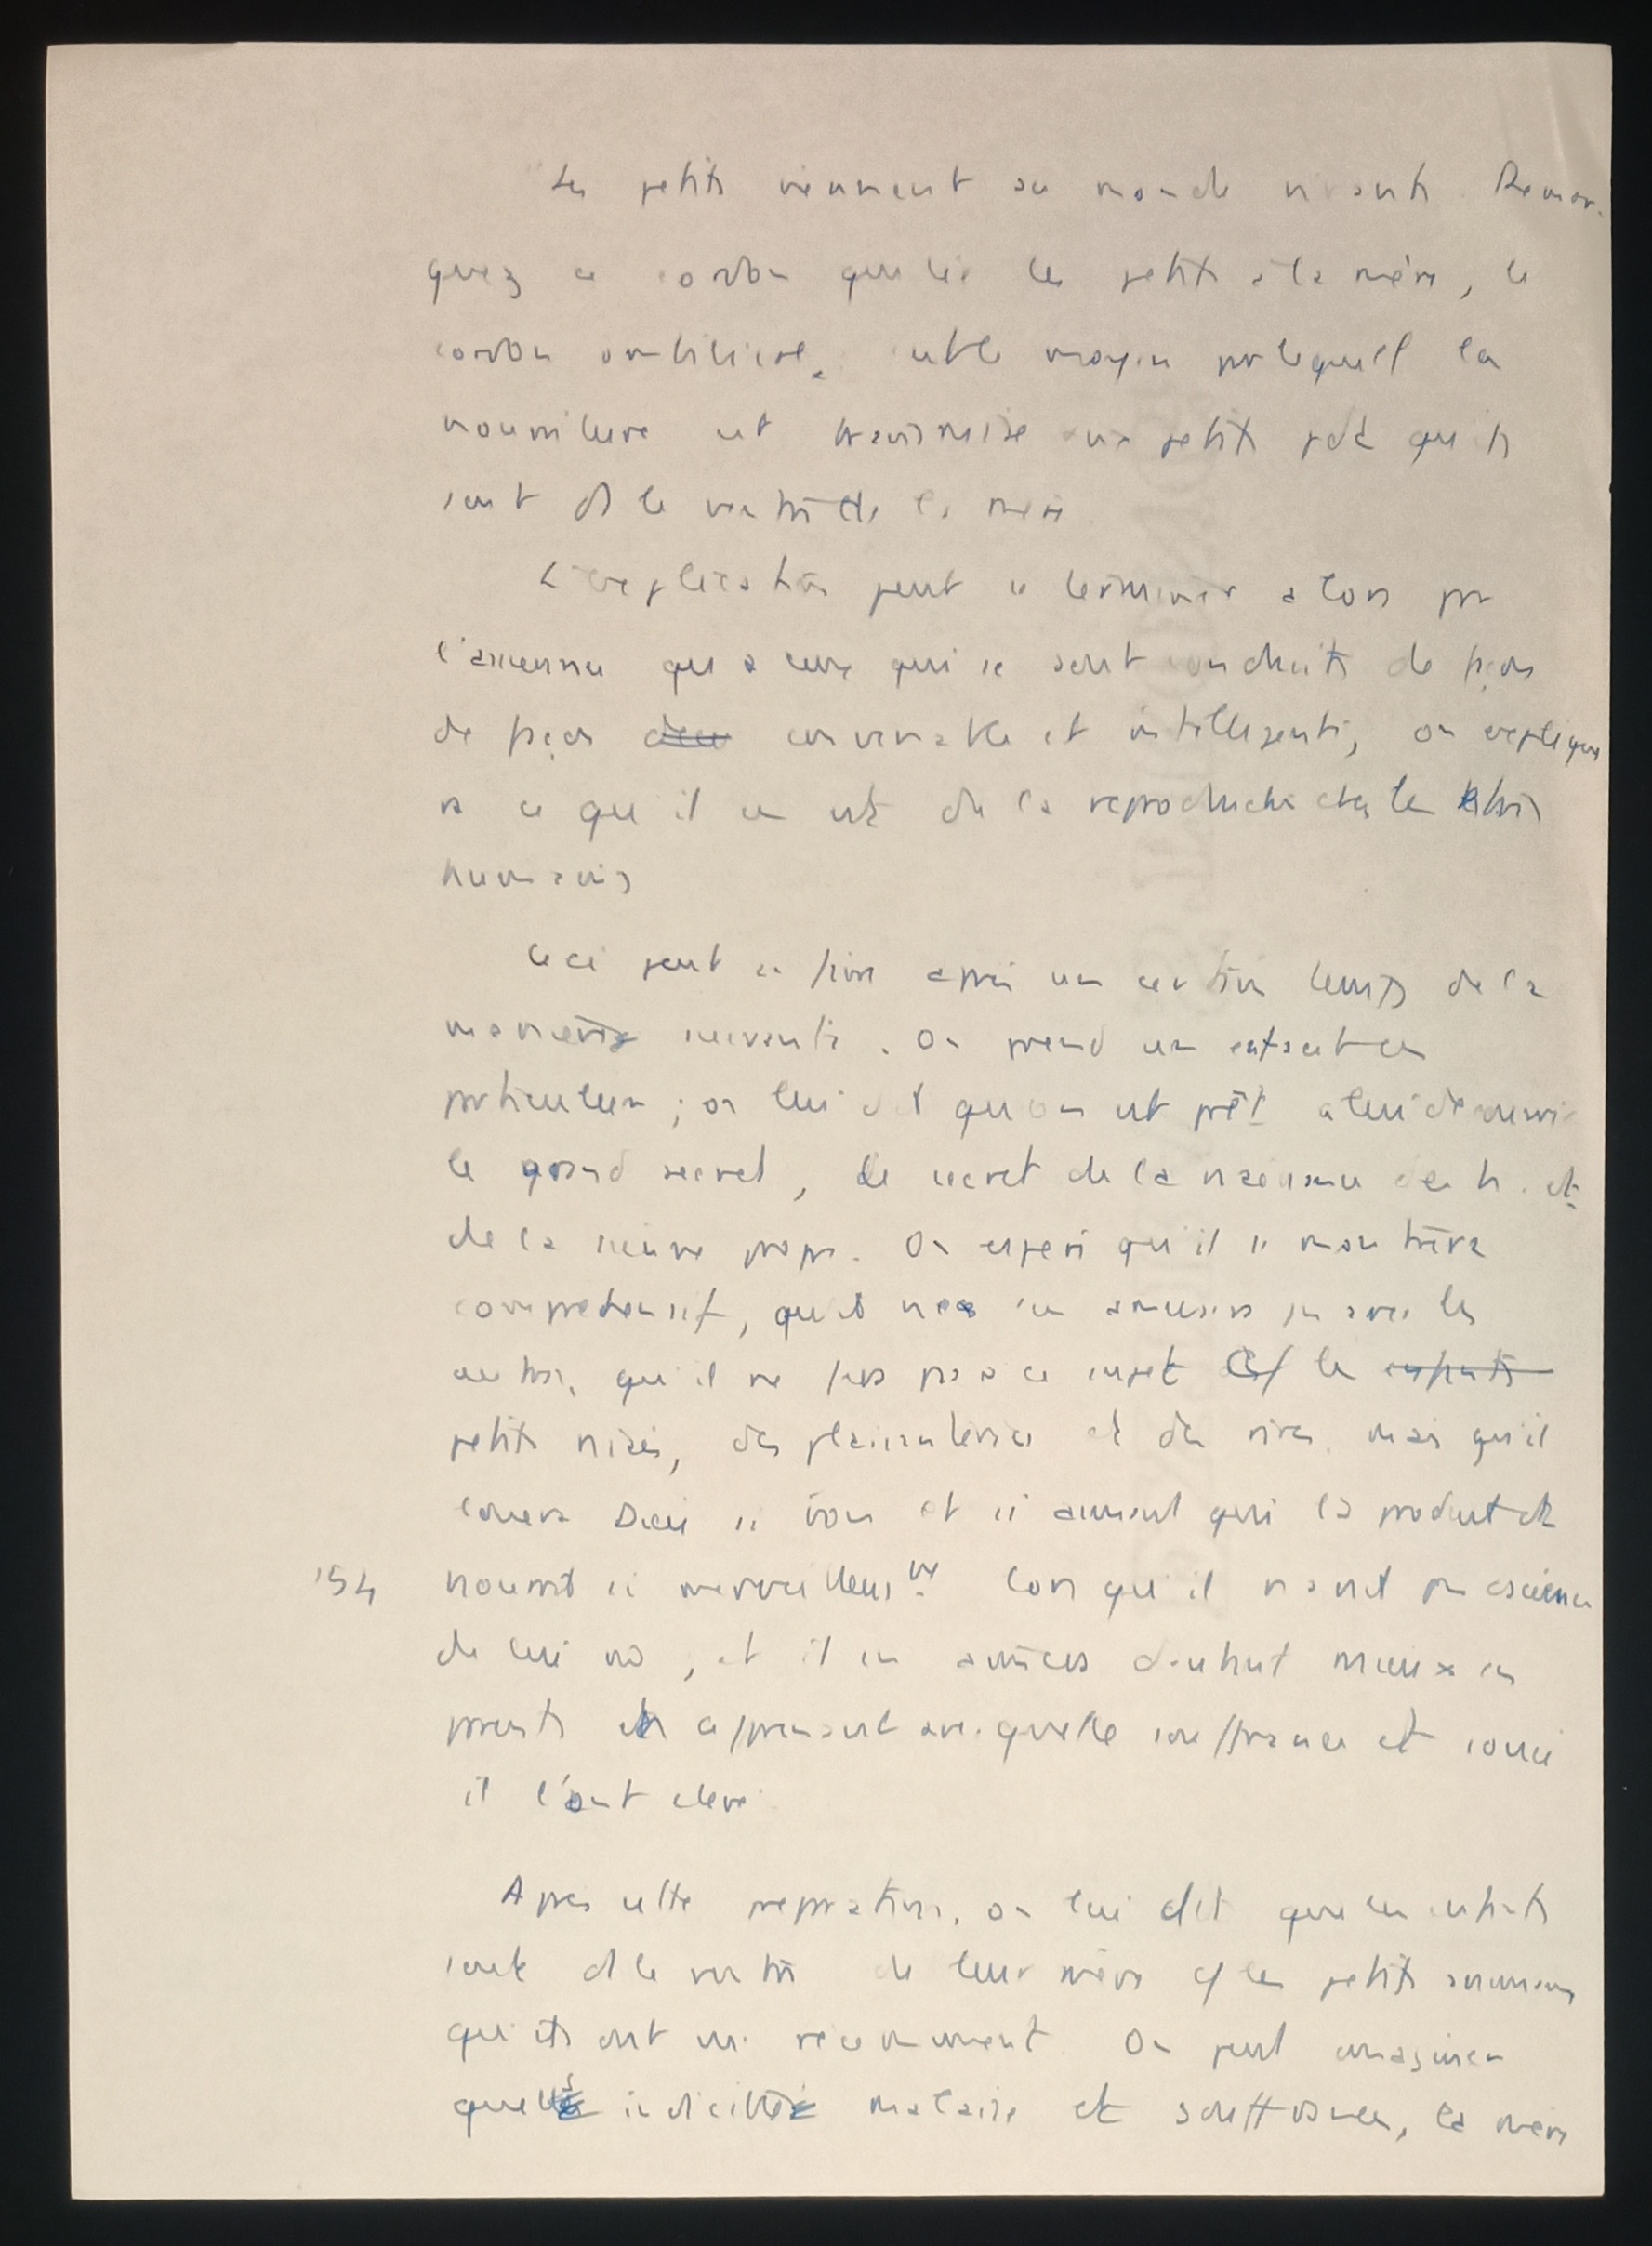 Les petits viennent au monde vivants. Remar-
quez ce cordon qui lie les petits à la mère, le
cordon ombilical. est le moyen par lequel la
nourriture est transmise aux petits pdt qu'ils
sont ds le ventre de la mère.
L'explication peut se terminer alors par
l'assurance qu'à ceux qui se sont conduits de façon
de façon convenable et intelligente, on explique
ra ce qu'il en est de la reproduction chez les êtres
humains
Ceci peut se faire après un certain temps de la
manière suivante. On prend un enfant en
particulier ; on lui dit qu'on est prêt à lui découvrir
le grand secret, le secret de la naissance et
de la sienne propre. On espère qu'il se montrera
compréhensif, qu'il n'ira s'en amuser pas avec les
autres, qu'il ne fera pas à ce sujet cf les enfants
petits niais, des plaisanteries et des rires mais qu'il
louera Dieu si bon et si aimant qui l'a produit et
'54 nourrit si merveilleus. lors qu'il n'avait pas conscience
de lui mê, et il en aimera d'autant mieux ses
parents en apprenant avec quelle souffrance et souci
il l'ont élevé.
Après cette préparation, on lui dit que les enfants
sont ds le ventre de leur mère cf les petits animaux
qu'ils ont vu récemment. On peut imaginer
quels indicible malaise et souffrances, la mère